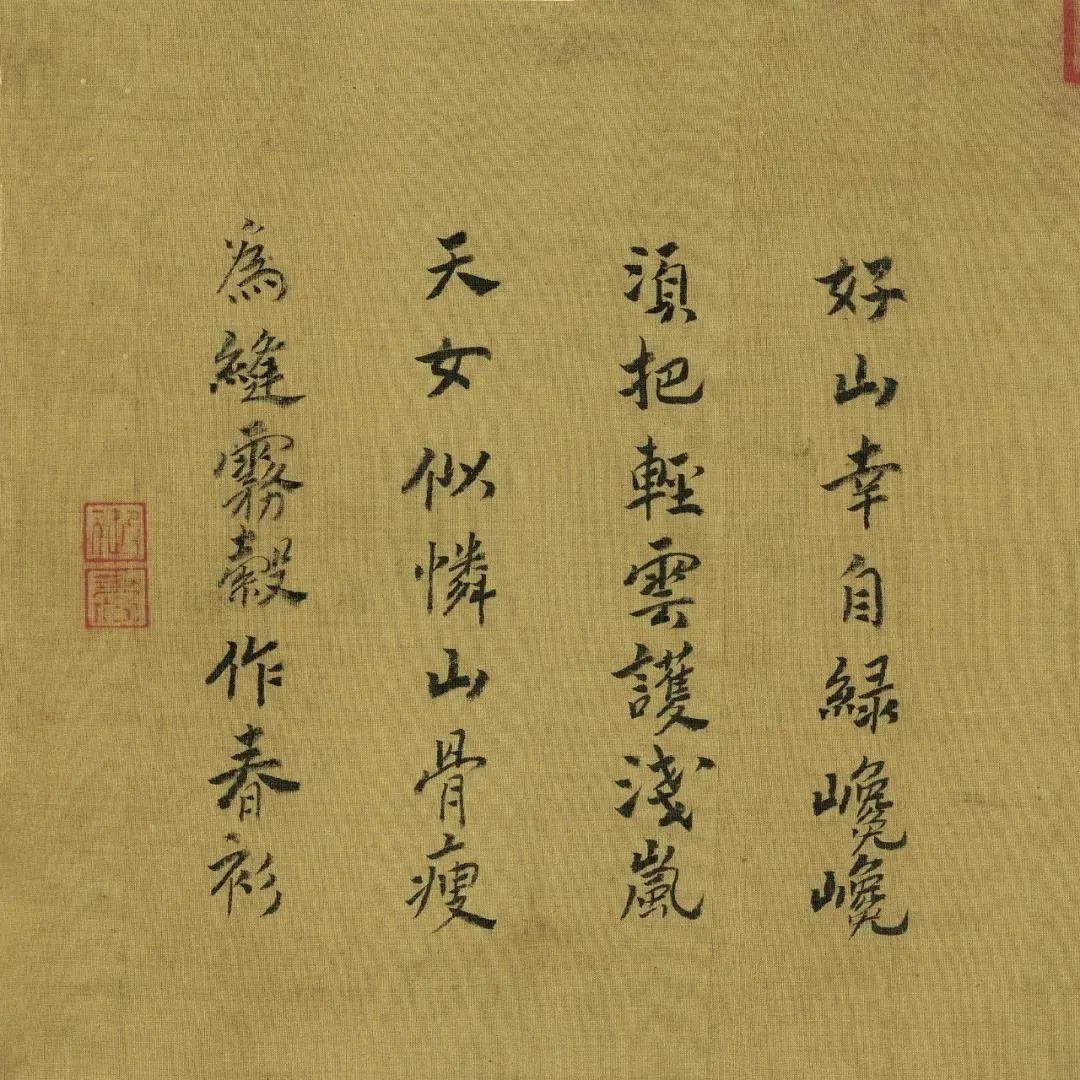 好山幸自緑巉巉
須把輕雲護淺嵐
天女似憐山骨瘦
為縫霧縠作春衫
御書